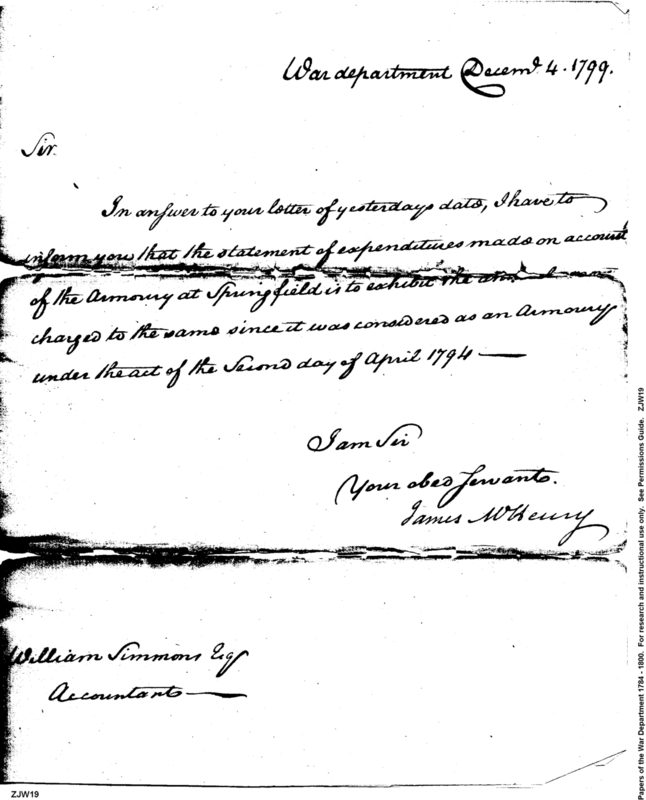 War department Decem.r 4. 1799.
Sir.
In answer to your letter of yesterdays date, I have to
inform you that the statement of expenditures made on account
of the Armoury at Springfield is to exhibit the
charged to the same since it was considered as an Armoury
under the act of the Second day of April 1794 —
I am Sir
Your obed Servant.
James McHenry
William Simmons Esq
Accountant —
ZJW19
Papers of the War Department 1784 - 1800. For research and instructional use only. See Permissions Guide. ZJW19